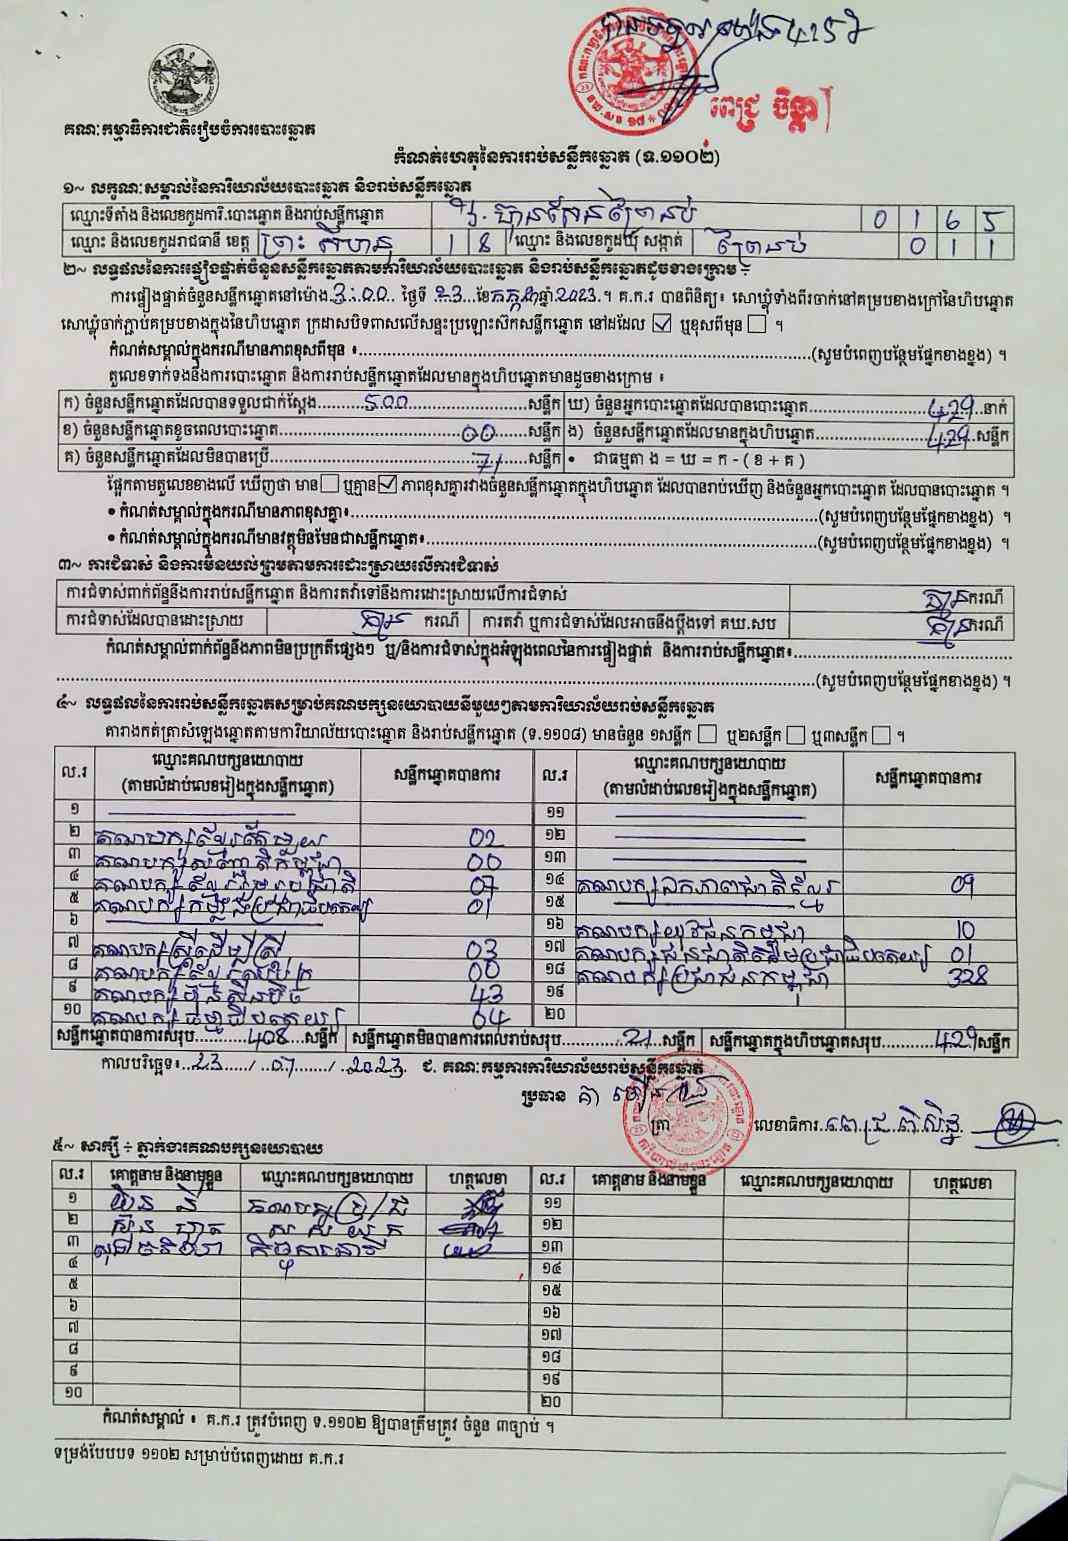 គណៈកម្មាធិការជាតិរៀបចំការបោះឆ្នោត
ពេជ្រ ចិន្តា
កំណត់ហេតុនៃការរាប់សន្លឹកឆ្នោត (ទ.១១០២)
១~ លក្ខណៈសម្គាល់នៃការិយាល័យបោះឆ្នោត និងរាប់សន្លឹកឆ្នោត
ឈ្មោះទីតាំង និងលេខកូដការិ.បោះឆ្នោត និងរាប់សន្លឹកឆ្នោត 0 1 6 5
ឈ្មោះ និងលេខកូដរាជធានី ខេត្ត ព្រះសីហនុ 1 8 ឈ្មោះ និងលេខកូដឃុំ សង្កាត់ ព្រៃនប់ 0 1 1
២~ លទ្ធផលនៃការផ្ទៀងផ្ទាត់ចំនួនសន្លឹកឆ្នោតតាមការិយាល័យបោះឆ្នោត និងរាប់សន្លឹកឆ្នោតដូចខាងក្រោម ÷
ការផ្ទៀងផ្ទាត់ចំនួនសន្លឹកឆ្នោតនៅម៉ោង 3:00 ថ្ងៃទី 23 ខែកក្កដា ឆ្នាំ 2023 ។ គ.ក.រ បានពិនិត្យ៖ សោឃ្លុំទាំងពីរចាក់នៅគម្របខាងក្រៅនៃហិបឆ្នោត
សោឃ្លុំចាក់ភ្ជាប់គម្របខាងក្នុងនៃហិបឆ្នោត ក្រដាសបិទពាសលើសន្ទះប្រឡោះស៊កសន្លឹកឆ្នោត នៅដដែល ☑ ឬខុសពីមុន ☐ ។
កំណត់សម្គាល់ក្នុងករណីមានភាពខុសពីមុន ៖ (សូមបំពេញបន្ថែមផ្នែកខាងខ្នង) ។
តួលេខទាក់ទងនឹងការបោះឆ្នោត និងការរាប់សន្លឹកឆ្នោតដែលមានក្នុងហិបឆ្នោតមានដូចខាងក្រោម ៖
ក) ចំនួនសន្លឹកឆ្នោតដែលបានទទួលជាក់ស្តែង 500 សន្លឹក ឃ) ចំនួនអ្នកបោះឆ្នោតដែលបានបោះឆ្នោត 429 នាក់
ខ) ចំនួនសន្លឹកឆ្នោតខូចពេលបោះឆ្នោត 00 សន្លឹក ង) ចំនួនសន្លឹកឆ្នោតដែលមានក្នុងហិបឆ្នោត 429 សន្លឹក
គ) ចំនួនសន្លឹកឆ្នោតដែលមិនបានប្រើ 71 សន្លឹក • ជាធម្មតា ង = ឃ = ក - ( ខ + គ )
ផ្អែកតាមតួលេខខាងលើ ឃើញថា មាន ☐ ឬគ្មាន ☑ ភាពខុសគ្នារវាងចំនួនសន្លឹកឆ្នោតក្នុងហិបឆ្នោត ដែលបានរាប់ឃើញ និងចំនួនអ្នកបោះឆ្នោត ដែលបានបោះឆ្នោត ។
• កំណត់សម្គាល់ក្នុងករណីមានភាពខុសគ្នា៖ (សូមបំពេញបន្ថែមផ្នែកខាងខ្នង) ។
• កំណត់សម្គាល់ក្នុងករណីមានវត្ថុមិនមែនជាសន្លឹកឆ្នោត៖ (សូមបំពេញបន្ថែមផ្នែកខាងខ្នង) ។
៣~ ការជំទាស់ និងការមិនយល់ព្រមតាមការដោះស្រាយលើការជំទាស់
ការជំទាស់ពាក់ព័ន្ធនឹងការរាប់សន្លឹកឆ្នោត និងការតវ៉ាទៅនឹងការដោះស្រាយលើការជំទាស់ គ្មាន ករណី
ការជំទាស់ដែលបានដោះស្រាយ គ្មាន ករណី ការតវ៉ា ឬការជំទាស់ដែលអាចនឹងប្តឹងទៅ គឃ.សប គ្មាន ករណី
កំណត់សម្គាល់ពាក់ព័ន្ធនឹងភាពមិនប្រក្រតីផ្សេងៗ ឬ/និងការជំទាស់ក្នុងអំឡុងពេលនៃការផ្ទៀងផ្ទាត់ និងការរាប់សន្លឹកឆ្នោត៖
(សូមបំពេញបន្ថែមផ្នែកខាងខ្នង) ។
៤~ លទ្ធផលនៃការរាប់សន្លឹកឆ្នោតសម្រាប់គណបក្សនយោបាយនីមួយៗតាមការិយាល័យរាប់សន្លឹកឆ្នោត
តារាងកត់ត្រាសំឡេងឆ្នោតតាមការិយាល័យបោះឆ្នោត និងរាប់សន្លឹកឆ្នោត (ទ.១១០៨) មានចំនួន ១សន្លឹក ☐ ឬ២សន្លឹក ☐ ឬ៣សន្លឹក ☐ ។
ល.រ ឈ្មោះគណបក្សនយោបាយ (តាមលំដាប់លេខរៀងក្នុងសន្លឹកឆ្នោត) សន្លឹកឆ្នោតបានការ ល.រ ឈ្មោះគណបក្សនយោបាយ (តាមលំដាប់លេខរៀងក្នុងសន្លឹកឆ្នោត) សន្លឹកឆ្នោតបានការ
១ ១១
២ គណបក្សខ្មែរតែមួយ 02 ១២
៣ គណបក្សសញ្ជាតិកម្ពុជា 00 ១៣
៤ គណបក្សខ្មែររួបរួមជាតិ 07 ១៤ គណបក្សឯកភាពជាតិខ្មែរ 09
៥ គណបក្សកម្លាំងប្រជាធិបតេយ្យ 01 ១៥
៦ ១៦ គណបក្សយុវជនកម្ពុជា 10
៧ គណបក្សស្ត្រីដើម្បីស្ត្រី 03 ១៧ គណបក្សជនជាតិដើមប្រជាធិបតេយ្យ 01
៨ 00 ១៨ គណបក្សប្រជាជនកម្ពុជា 328
៩ គណបក្សហ៊្វុនស៊ិនប៉ិច 43 ១៩
១០ គណបក្សធម្មាធិបតេយ្យ 04 ២០
សន្លឹកឆ្នោតបានការសរុប 408 សន្លឹក សន្លឹកឆ្នោតមិនបានការពេលរាប់សរុប 21 សន្លឹក សន្លឹកឆ្នោតក្នុងហិបឆ្នោតសរុប 429 សន្លឹក
កាលបរិច្ឆេទ៖ 23 / 07 / 2023 ជ. គណៈកម្មការការិយាល័យរាប់សន្លឹកឆ្នោត
ប្រធាន
ត្រា លេខាធិការ ពេជ្រ ពិសិដ្ឋ
៥~ សាក្សី ÷ ភ្នាក់ងារគណបក្សនយោបាយ
ល.រ គោត្តនាម និងនាមខ្លួន ឈ្មោះគណបក្សនយោបាយ ហត្ថលេខា ល.រ គោត្តនាម និងនាមខ្លួន ឈ្មោះគណបក្សនយោបាយ ហត្ថលេខា
១ ១១
២ ស ស យ ក ១២
៣ ១៣
៤ ១៤
៥ ១៥
៦ ១៦
៧ ១៧
៨ ១៨
៩ ១៩
១០ ២០
កំណត់សម្គាល់ ៖ គ.ក.រ ត្រូវបំពេញ ទ.១១០២ ឱ្យបានត្រឹមត្រូវ ចំនួន ៣ច្បាប់ ។
ទម្រង់បែបបទ ១១០២ សម្រាប់បំពេញដោយ គ.ក.រ